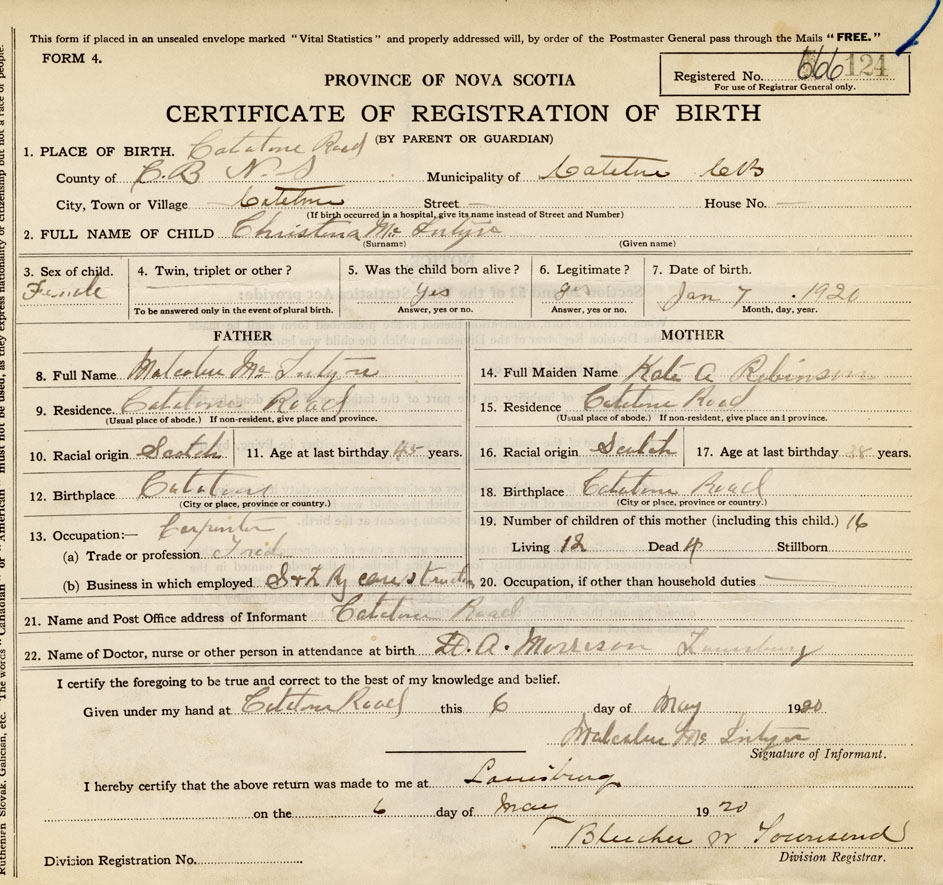 This form if placed in an unsealed envelope marked "Vital Statistics" and properly addressed will, by order of the Postmaster General pass through the Mails "FREE."
FORM 4.
Registered No. 666 124
For use of Registrar General only.
PROVINCE OF NOVA SCOTIA
CERTIFICATE OF REGISTRATION OF BIRTH
(BY PARENT OR GUARDIAN)
1. PLACE OF BIRTH. Catatone Road
County of C.B N.S Municipality of Catetone
City, Town or Village Catetone Street House No.
(If birth occurred in a hospital, give its name instead of Street and Number)
2. FULL NAME OF CHILD Christina Mc Intyre
(Surname) (Given name)
3. Sex of child. 4. Twin, triplet or other? 5. Was the child born alive? 6. Legitimate? 7. Date of birth.
Female Yes yes Jan 7 . 1920
To be answered only in the event of plural birth. Answer, yes or no. Answer, yes or no. Month, day, year.
FATHER
8. Full Name Malcolm Mc Intyre
9. Residence. Catatone Road
(Usual place of abode.) If non-resident, give place and province.
10. Racial origin Scotch 11. Age at last birthday 45 years.
12. Birthplace Catatone
(City or place, province or country.)
13. Occupation:— Carpenter
(a) Trade or profession Trade
(b) Business in which employed S & L Ry construction
MOTHER
14. Full Maiden Name Kate A Robinson
15. Residence Catetone Road
(Usual place of abode.) If non-resident, give place and province.
16. Racial origin Scotch 17. Age at last birthday 38 years.
18. Birthplace Catetone Road
(City or place, province or country.)
19. Number of children of this mother (including this child.) 16
Living 12 Dead 4 Stillborn
20. Occupation, if other than household duties
21. Name and Post Office address of Informant Catetone Road
22. Name of Doctor, nurse or other person in attendance at birth D. A. Morrison Louisburg
I certify the foregoing to be true and correct to the best of my knowledge and belief.
Given under my hand at Catetone Road this 6 day of May 1920
Malcolm Mc Intyre
Signature of Informant.
I hereby certify that the above return was made to me at Louisburg
on the 6 day of May 1920
Bleecher W Townsend
Division Registrar.
Division Registration No.
Ruthenien Slovak, Galician, etc. The words "Canadian" or "American" must not be used, as they express nationality or citizenship but not a race of people.